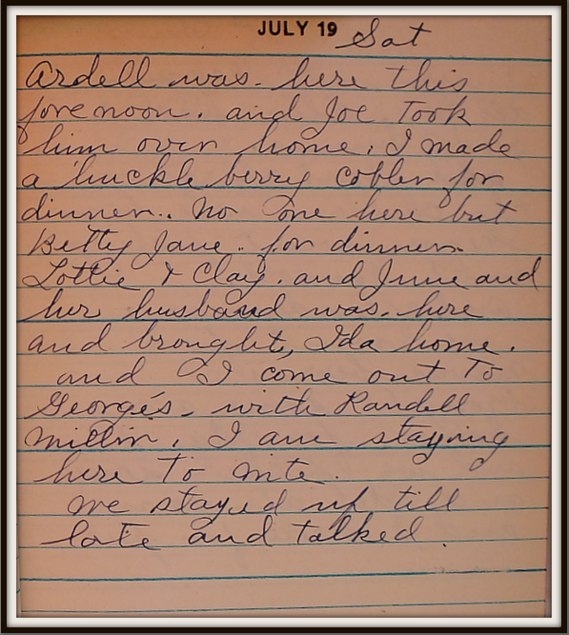 JULY 19 Sat
Ardell was. here this
fore noon. and Joe Took
him over home. I made
a huckle berry cobler for
dinner.. No one here but
Betty Jane. for dinner.
Lottie & Clay. and June and
her husband was. here
and brought, Ida home.
and I come out To
George's. with Randell
Millin. I am staying
here To nite.
We stayed up till
late and talked.